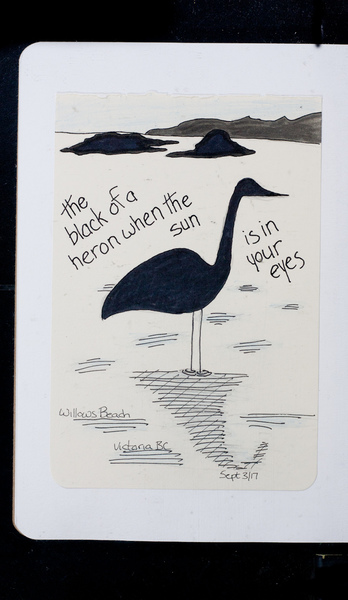 the
black of a
heron when the
sun
is in
your
eyes
Willows Beach
Victoria BC
Sept 3/17